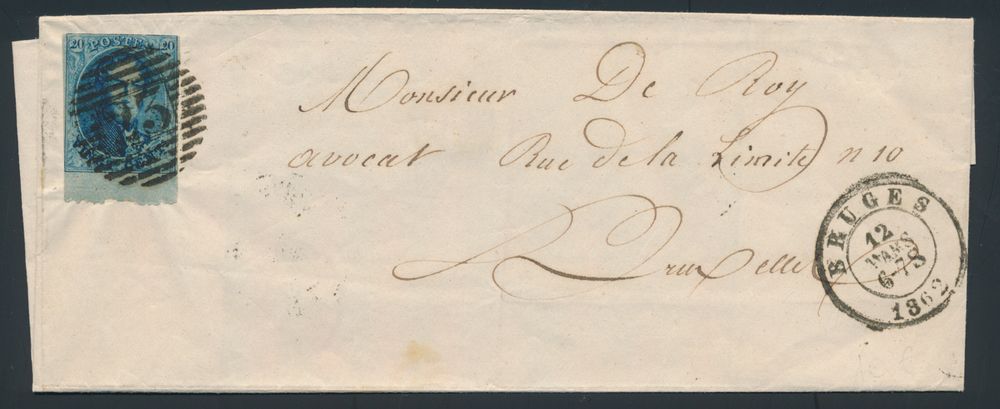 20 POSTES 20
Monsieur De Roy
avocat Rue de la Limite n 10
Bruxelles
BRUGES
12
MARS
6-7S
1862